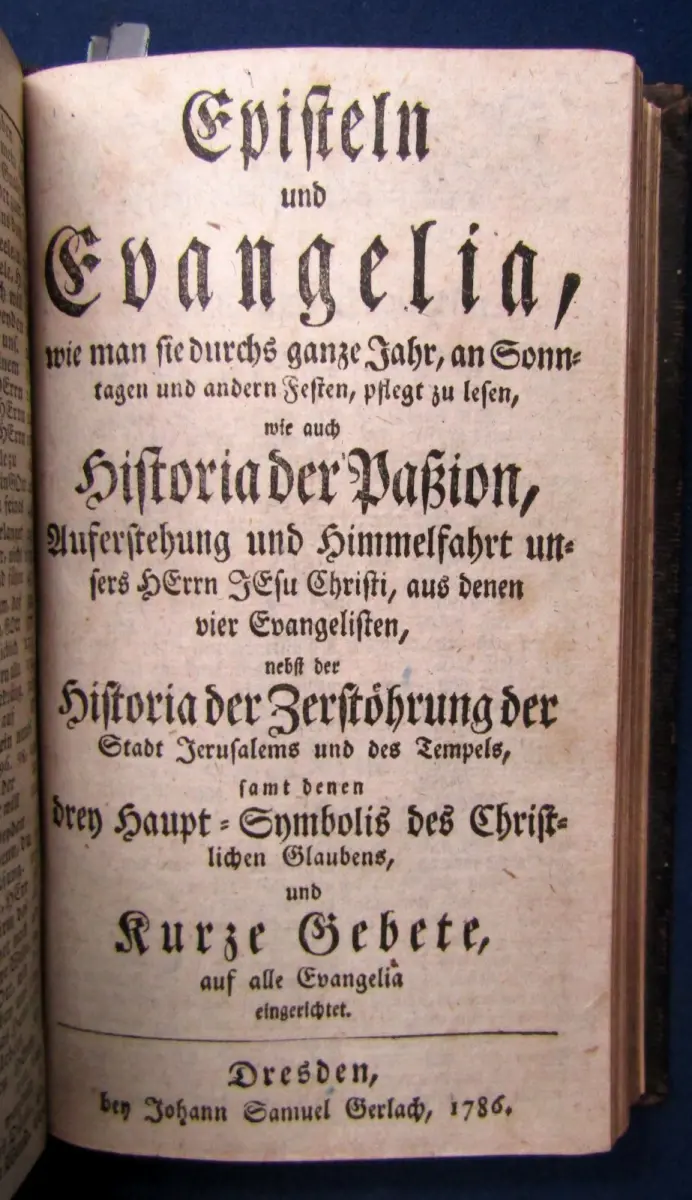 Episteln
und
Evangelia,
wie man sie durchs ganze Jahr, an Sonn-
tagen und andern Festen, pflegt zu lesen,
wie auch
Historia der Paßion,
Auferstehung und Himmelfahrt un-
sers HErrn JEsu Christi, aus denen
vier Evangelisten,
nebst der
Historia der Zerstöhrung der
Stadt Jerusalems und des Tempels,
samt denen
drey Haupt-Symbolis des Christ-
lichen Glaubens,
und
Kurze Gebete,
auf alle Evangelia
eingerichtet.
Dresden,
bey Johann Samuel Gerlach, 1786.